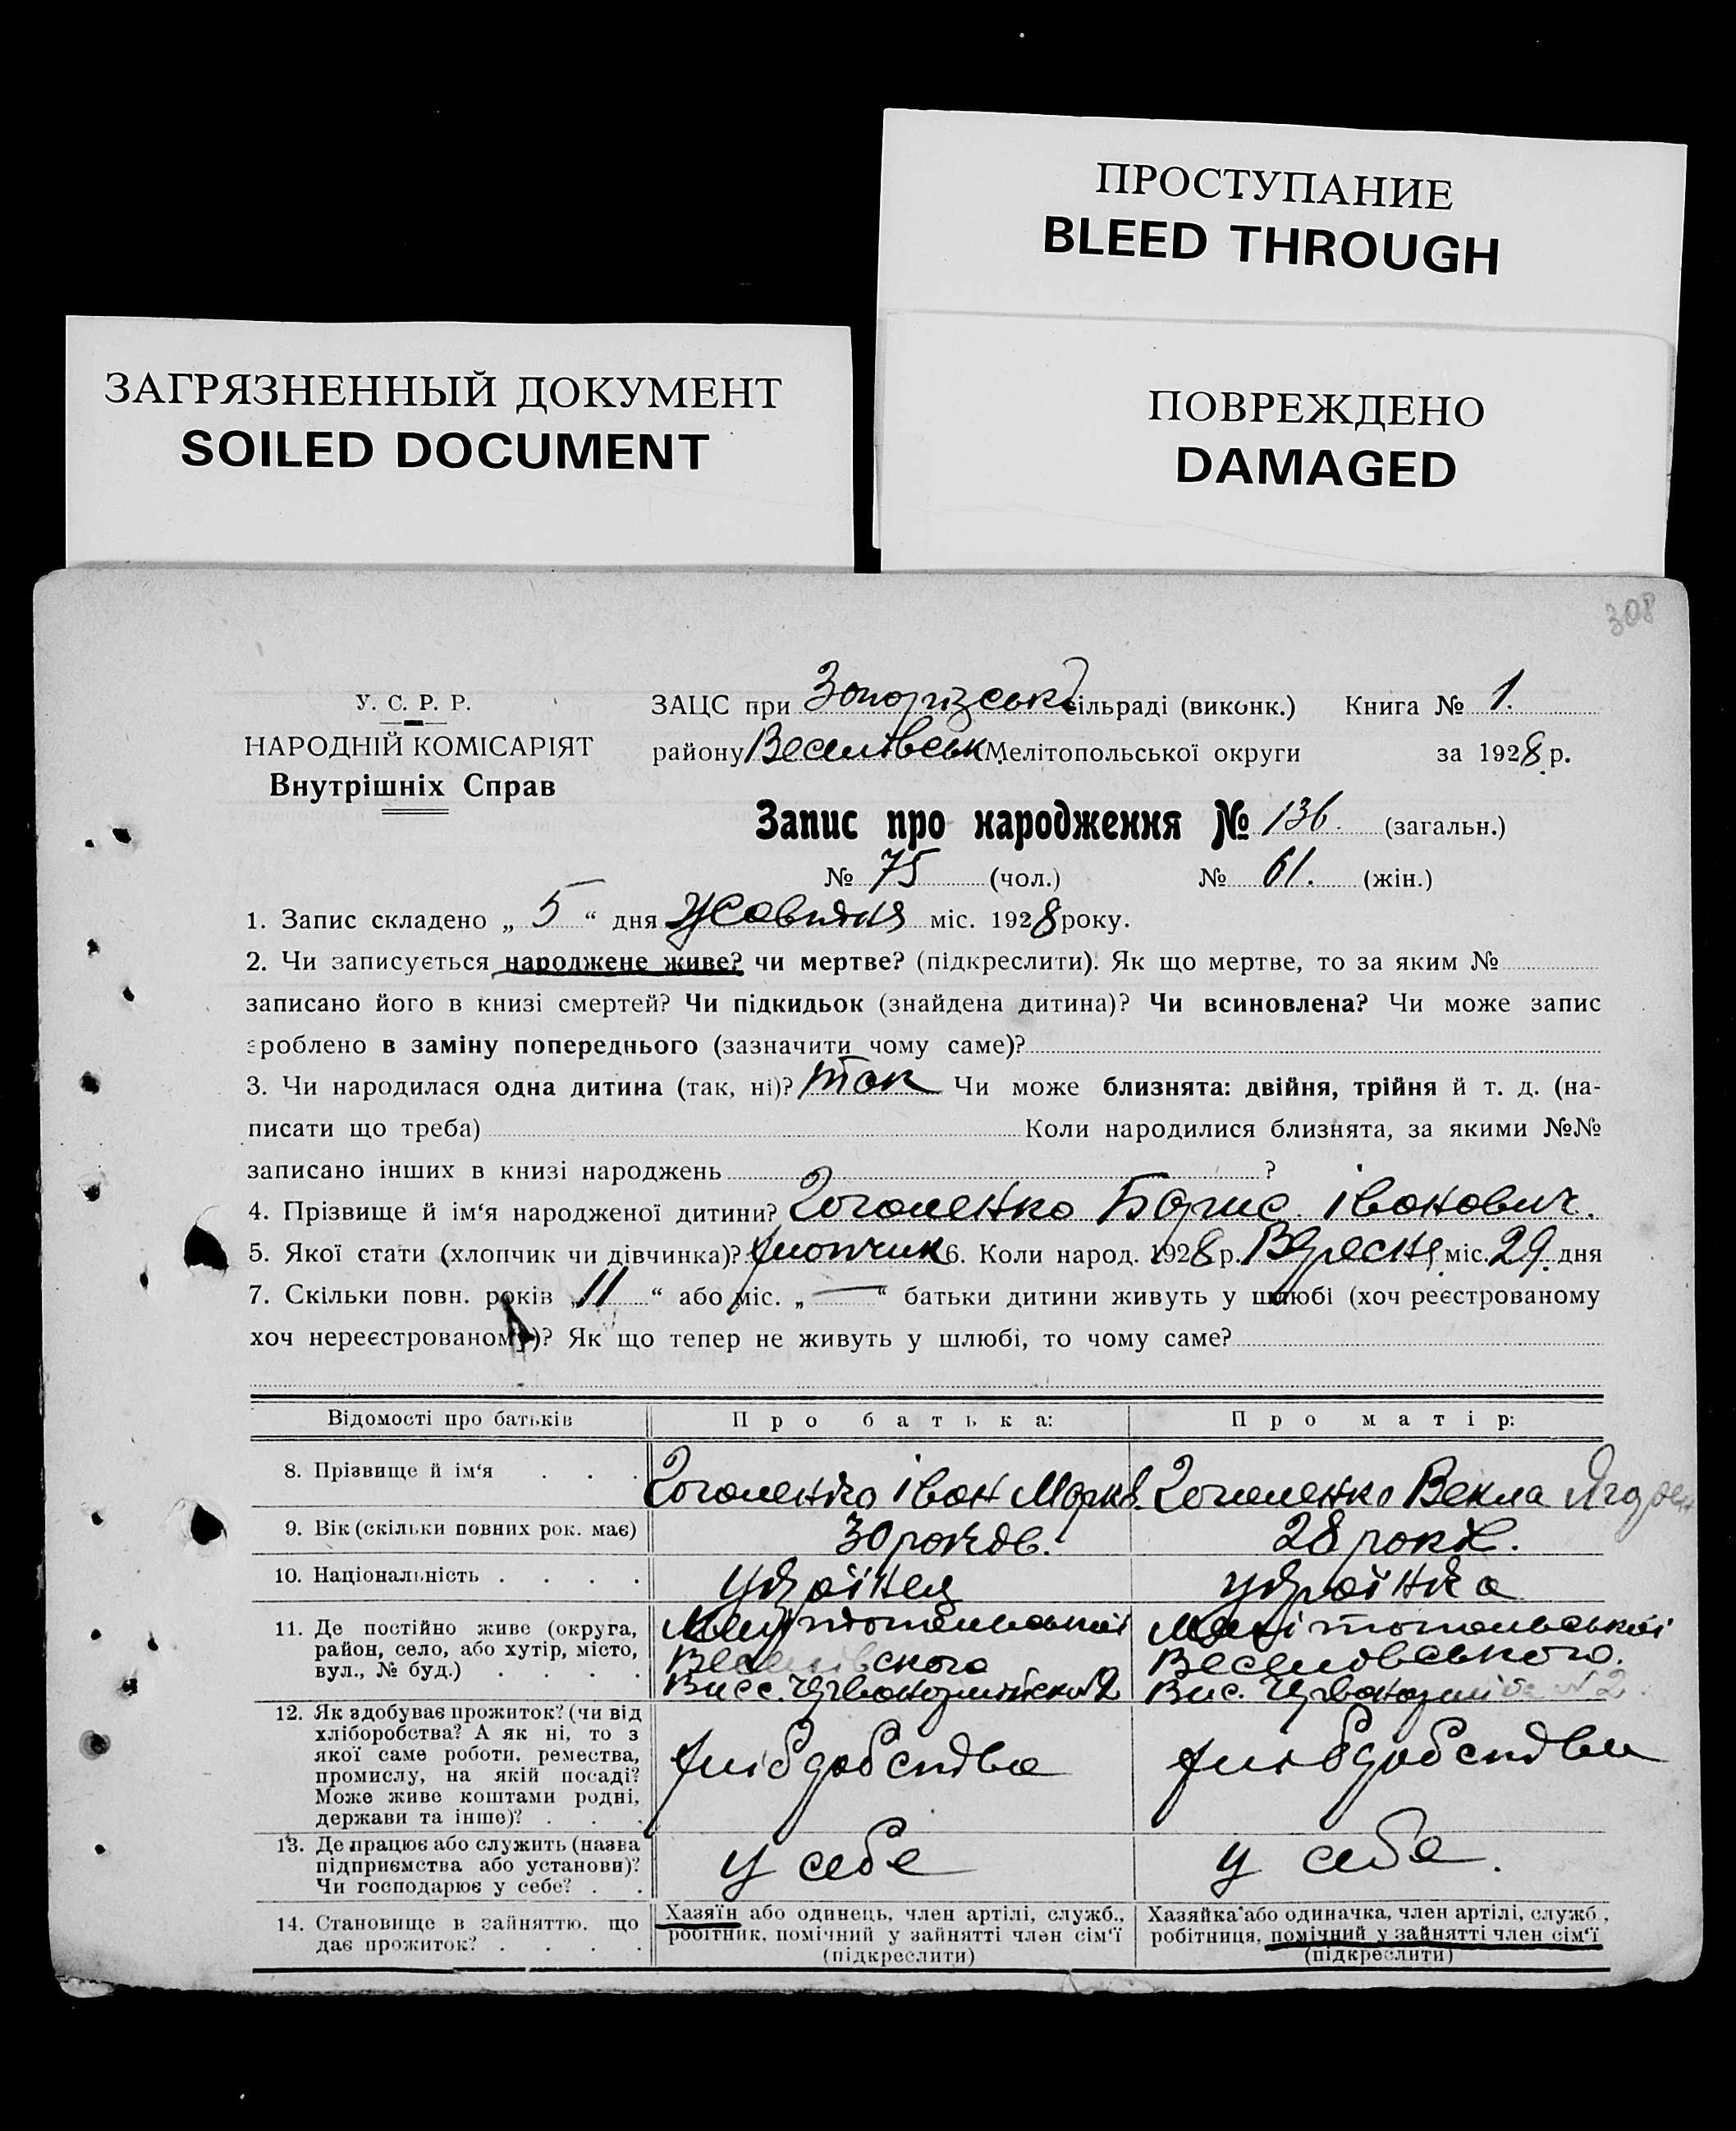 ПРОСТУПАНИЕ
BLEED THROUGH
ЗАГРЯЗНЕННЫЙ ДОКУМЕНТ
SOILED DOCUMENT
ПОВРЕЖДЕНО
DAMAGED
308
У. С. Р. Р.
НАРОДНІЙ КОМІСАРІЯТ
Внутрішніх Справ
ЗАЦС при Запорізській сільраді (виконк.) Книга № 1.
району Веселівськ Мелітопольської округи за 1928 р.
Запис про народження № 136. (загальн.)
№ 75 (чол.) № 61. (жін.)
1. Запис складено „ 5 “ дня Жовтня міс. 1928 року.
2. Чи записується народжене живе? чи мертве? (підкреслити). Як що мертве, то за яким №
записано його в книзі смертей? Чи підкидьок (знайдена дитина)? Чи всиновлена? Чи може запис
зроблено в заміну попереднього (зазначити чому саме)?
3. Чи народилася одна дитина (так, ні)? так Чи може близнята: двійня, трійня й т. д. (на-
писати що треба) Коли народилися близнята, за якими №№
записано інших в книзі народжень ?
4. Прізвище й ім‘я народженої дитини? Гоголенко Борис Іванович.
5. Якої стати (хлопчик чи дівчинка)? хлопчик 6. Коли народ. 1928 р. Вересня міс. 29. дня
7. Скільки повн. років „ 11 “ або міс. „ — “ батьки дитини живуть у шлюбі (хоч реєстрованому
хоч нереєстрованому)? Як що тепер не живуть у шлюбі, то чому саме?
Відомості про батьків Про батька: Про матір:
8. Прізвище й ім‘я . . . Гоголенко Іван Марк. Гоголенко Векла
9. Вік (скільки повних рок. має) 30 років. 28 років.
10. Національність . . . . українец українка
11. Де постійно живе (округа, район, село, або хутір, місто, вул., № буд.) . . . .
Мелітопольської Веселівского
Мелітопольської Веселовського.
12. Як здобуває прожиток? (чи від хліборобства? А як ні, то з якої саме роботи, ремества, промислу, на якій посаді? Може живе коштами родні, держави та інше)? . . .
хліборобства хліборобства
13. Де працює або служить (назва підприємства або установи)? Чи господарює у себе? . .
у себе у себе.
14. Становище в зайняттю, що дає прожиток? . . . .
Хазяїн або одинець, член артілі, служб., робітник, помічний у зайнятті член сім‘ї (підкреслити)
Хазяйка або одиначка, член артілі, служб., робітниця, помічний у зайнятті член сім‘ї (підкреслити)